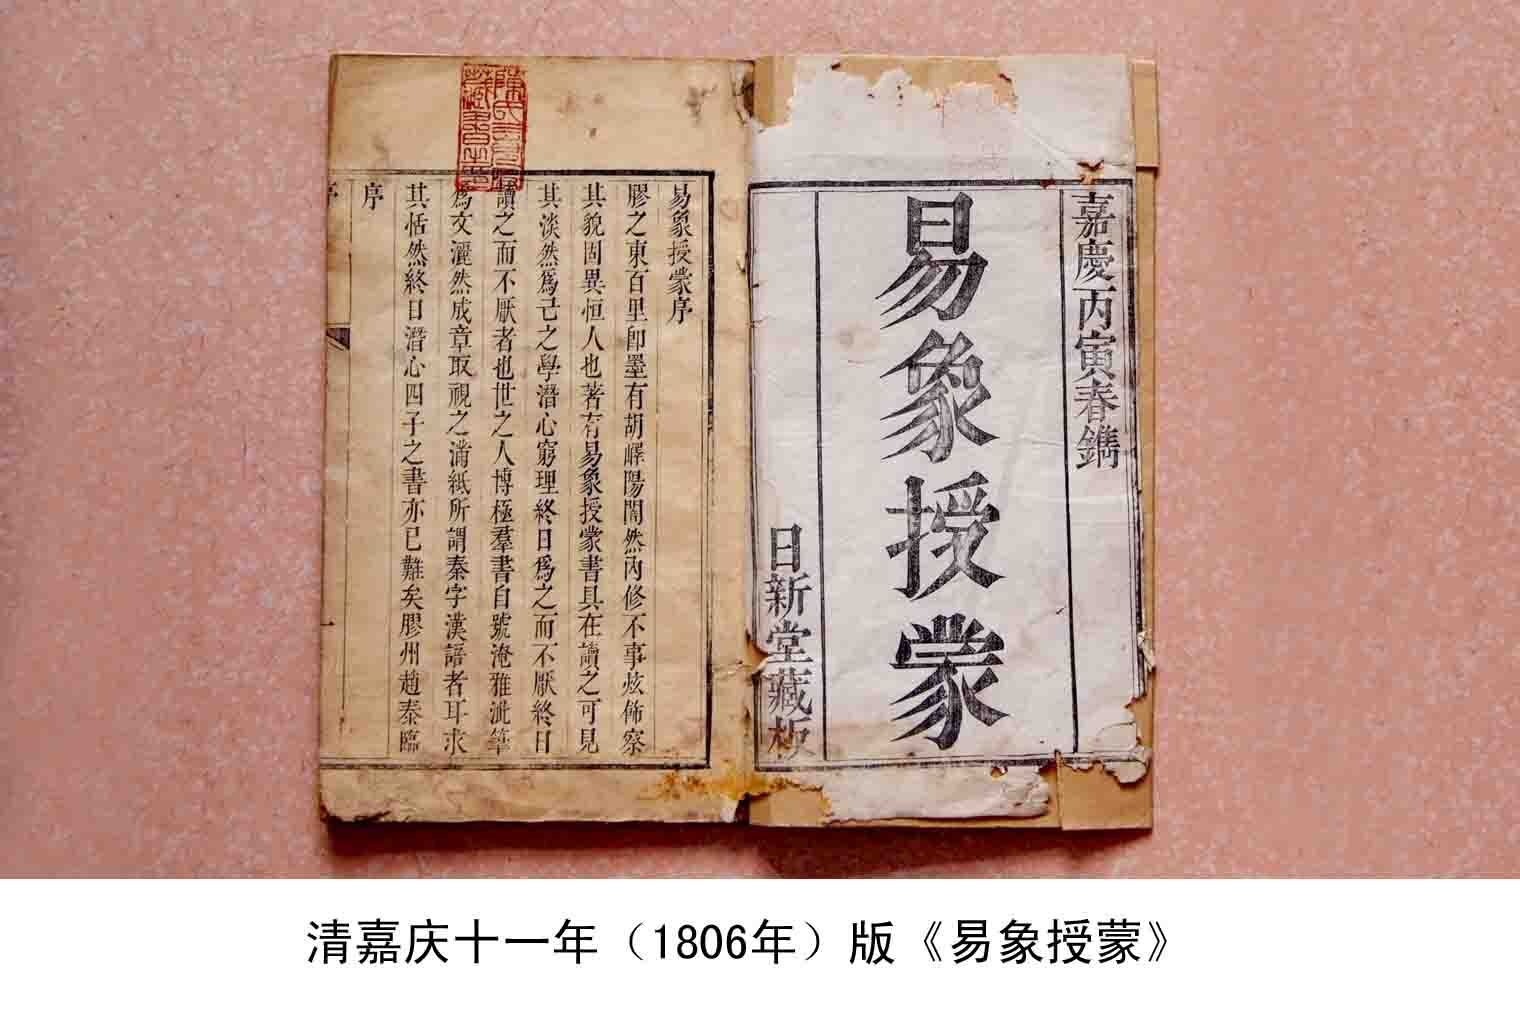 嘉慶丙寅春鐫
易象授蒙
日新堂藏板
易象授蒙序
膠之東百里卽墨有胡嶧陽闇然內修不事炫飾察
其貌固異恒人也著有易象授蒙書具在讀之可見
其淡然爲己之學潛心窮理終日爲之而不厭終日
讀之而不厭者也世之人博極羣書自號淹雅泚筆
爲文灑然成章取視之滿紙所謂秦字漢語者耳求
其恬然終日潛心四子之書亦已難矣膠州趙泰臨
序
序
一
清嘉庆十一年（1806年）版《易象授蒙》